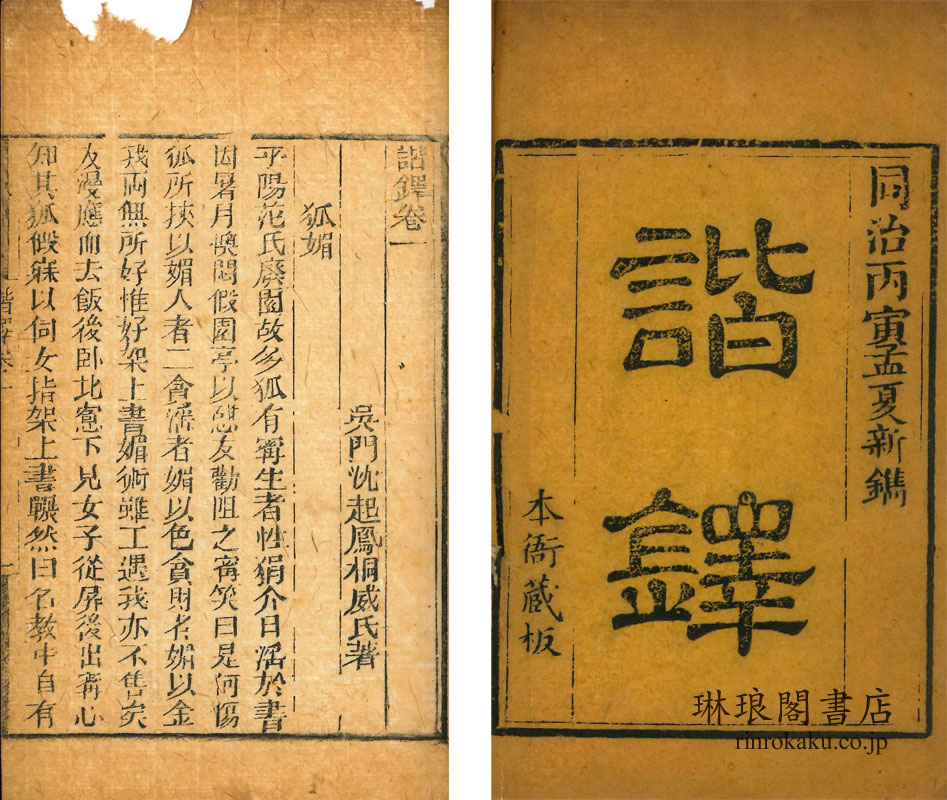 同治丙寅孟夏新鐫
諧鐸
本衙藏板
琳琅閣書店
rinrokaku.co.jp
諧鐸卷一
吳門沈起鳳桐威氏著
狐媚
平陽范氏廢園故多狐有甯生者性狷介日滛於書
因暑月煩悶假園亭以憇友勸阻之甯笑曰是何傷
狐所挾以媚人者二貪滛者媚以色貪財者媚以金
我兩無所好惟好架上書媚術雖工遇我亦不售矣
友漫應而去飯後卧北窻下見女子從屏後出甯心
知其狐假寐以伺女指架上書囅然曰名教中自有